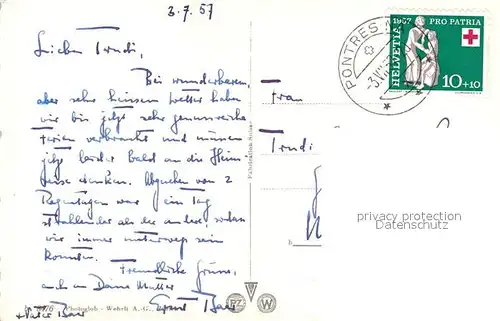 3.7.57
Liebes Trudi,
Bei wunderbarem,
aber sehr heissem Wetter haben
wir bis jetzt sehr genussreiche
Ferien verbracht und müssen
jetzt leider bald an die Heim-
reise denken. Abgesehen von 2
Regentagen war ein Tag
strahlender als der andere, sodass
wir immer unterwegs sein
konnten.
Freundliche Grüsse,
auch an Deine Mutter
Frau
Trudi
PONTRES
-3.VII
1957 PRO PATRIA
HELVETIA
10+10
privacy protection
Datenschutz
Photoglob - Wehrli A.-G.,
PZ W